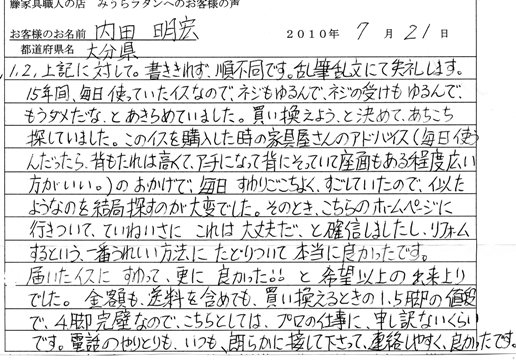 籐家具職人の店 みうらラタンへのお客様の声
お客様のお名前 内田 明宏 2010年 7月 21日
都道府県名 大分県
1.2,上記に対して。書ききれず、順不同です。乱筆乱文にて失礼します。
15年間、毎日使っていたイスなので、ネジもゆるんで、ネジの受けもゆるんで、
もうダメだな、とあきらめていました。買い換えよう、と決めて、あちこち
探していました。このイスを購入した時の家具屋さんのアドバイス(毎日使う
んだったら、背もたれは高くて、アーチになって背にそっていて座面もある程度広い
方がいい。)のおかげで、毎日すわりごこちよく、すごしていたので、似た
ようなのを結局探すのが大変でした。そのとき、こちらのホームページに
行きついて、ていねいさに これは大丈夫だ、と確信しましたし、リフォーム
するという、一番うれしい方法に たどりついて 本当に良かったです。
届いたイスに すわって、更に 良かった。。 と 希望以上の出来上り
でした。 金額も、送料を含めても、買い換えるときの1.5脚の値段
で、4脚完璧なので、こちらとしては、プロの仕事に、申し訳ないくらい
です。電話のやりとりも、いつも、朗らかに接して下さって、連絡しやすく、良かったです。